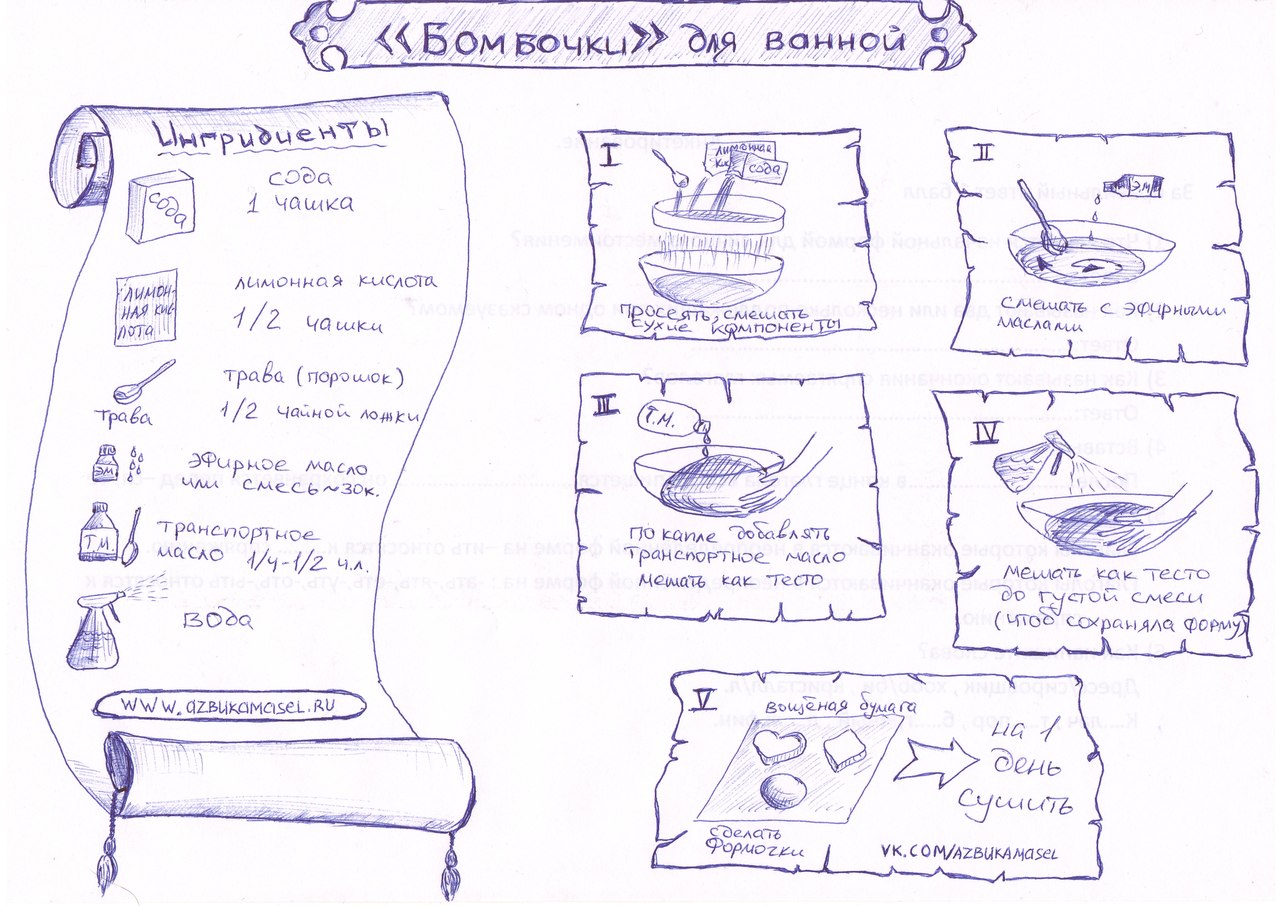 «Бомбочки» для ванной
Ингридиенты
сода
сода
1 чашка
лимон-
ная кис-
лота
лимонная кислота
1/2 чашки
трава
трава (порошок)
1/2 чайной ложки
ЭМ
эфирное масло
или смесь ~30к.
Т.М.
транспортное
масло 1/4-1/2 ч.л.
вода
www.azbukamasel.ru
I
лимонная
кк
сода
просеять, смешать
сухие компоненты
II
Э.М
смешать с эфирными
маслами
III
Т.М.
по капле добавлять
транспортное масло
мешать как тесто
IV
мешать как тесто
до густой смеси
(чтоб сохраняла форму)
V
вощёная бумага
на 1
день
сушить
сделать
формочки
vk.com/azbukamasel